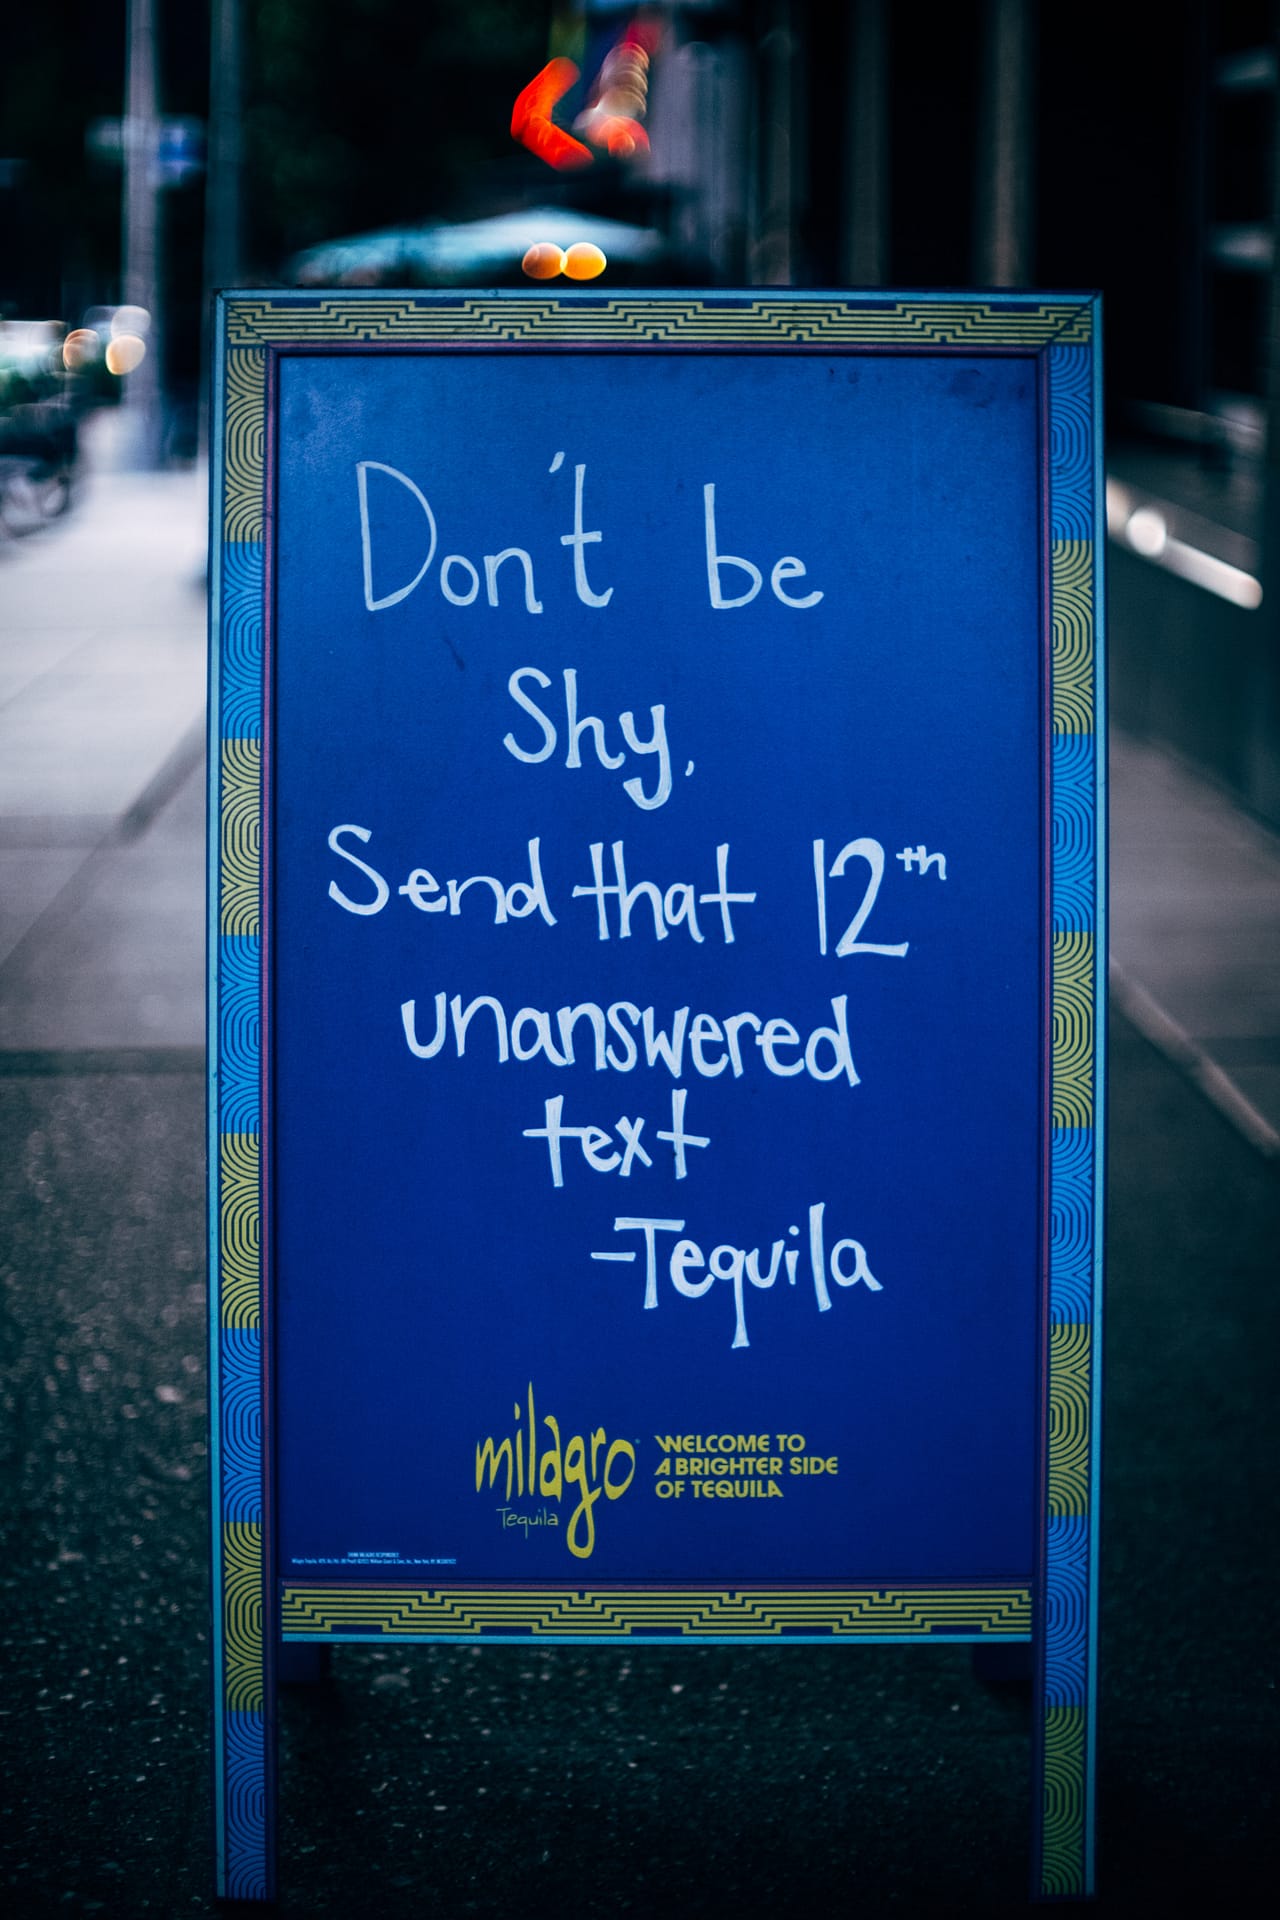 Don't be
Shy,
Send that 12th
unanswered
text
-Tequila
milagro
Tequila
WELCOME TO
A BRIGHTER SIDE
OF TEQUILA